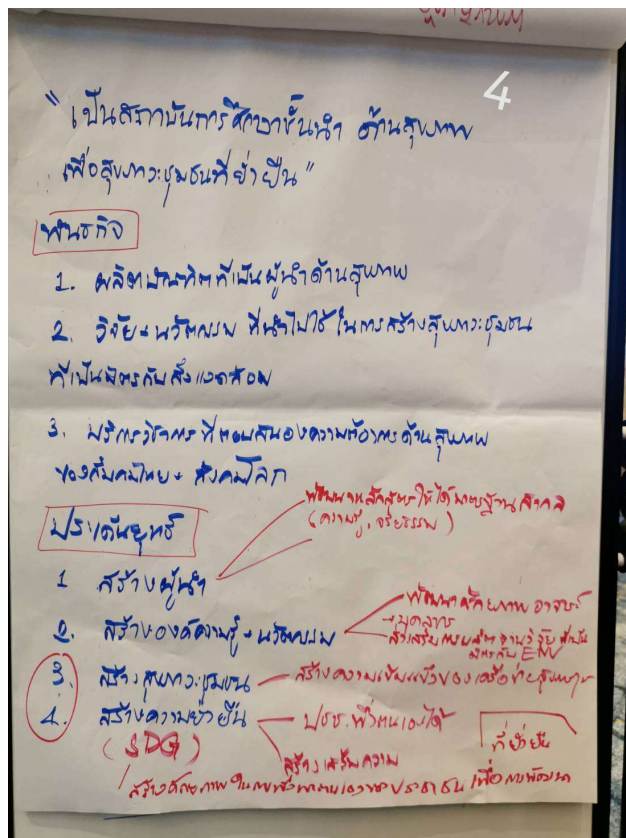 4
"เป็นสถาบันการศึกษาชั้นนำ ด้านสุขภาพ
เพื่อสุขภาวะชุมชนที่ยั่งยืน"
พันธกิจ
1. ผลิตบัณฑิตที่เป็นผู้นำด้านสุขภาพ
2. วิจัย+นวัตกรรม ที่นำไปใช้ในการสร้างสุขภาวะชุมชน
ที่เป็นมิตรกับสิ่งแวดล้อม
3. บริการวิชาการที่ตอบสนองความต้องการด้านสุขภาพ
ของสังคมไทย+ สังคมโลก
ประเด็นยุทธ์
พัฒนาหลักสูตรให้ได้มาตรฐานสากล
(ความรู้, จริยธรรม)
1 สร้างผู้นำ
พัฒนาศักยภาพอาจารย์
2. สร้างองค์ความรู้+นวัตกรรม
บุคลากร
ส่งเสริมการผลิตงานวิจัยที่เป็น
มิตรกับ ENV
3. สร้างสุขภาวะชุมชน – สร้างความเข้มแข็งของเครือข่ายสุขภาพ
4. สร้างความยั่งยืน – ปชช. พึ่งตนเองได้
(SDG)
ที่ยั่งยืน
สร้างเสริมความ
สร้างศักยภาพในการพึ่งพาตนเองของประชาชน เพื่อการพัฒนา